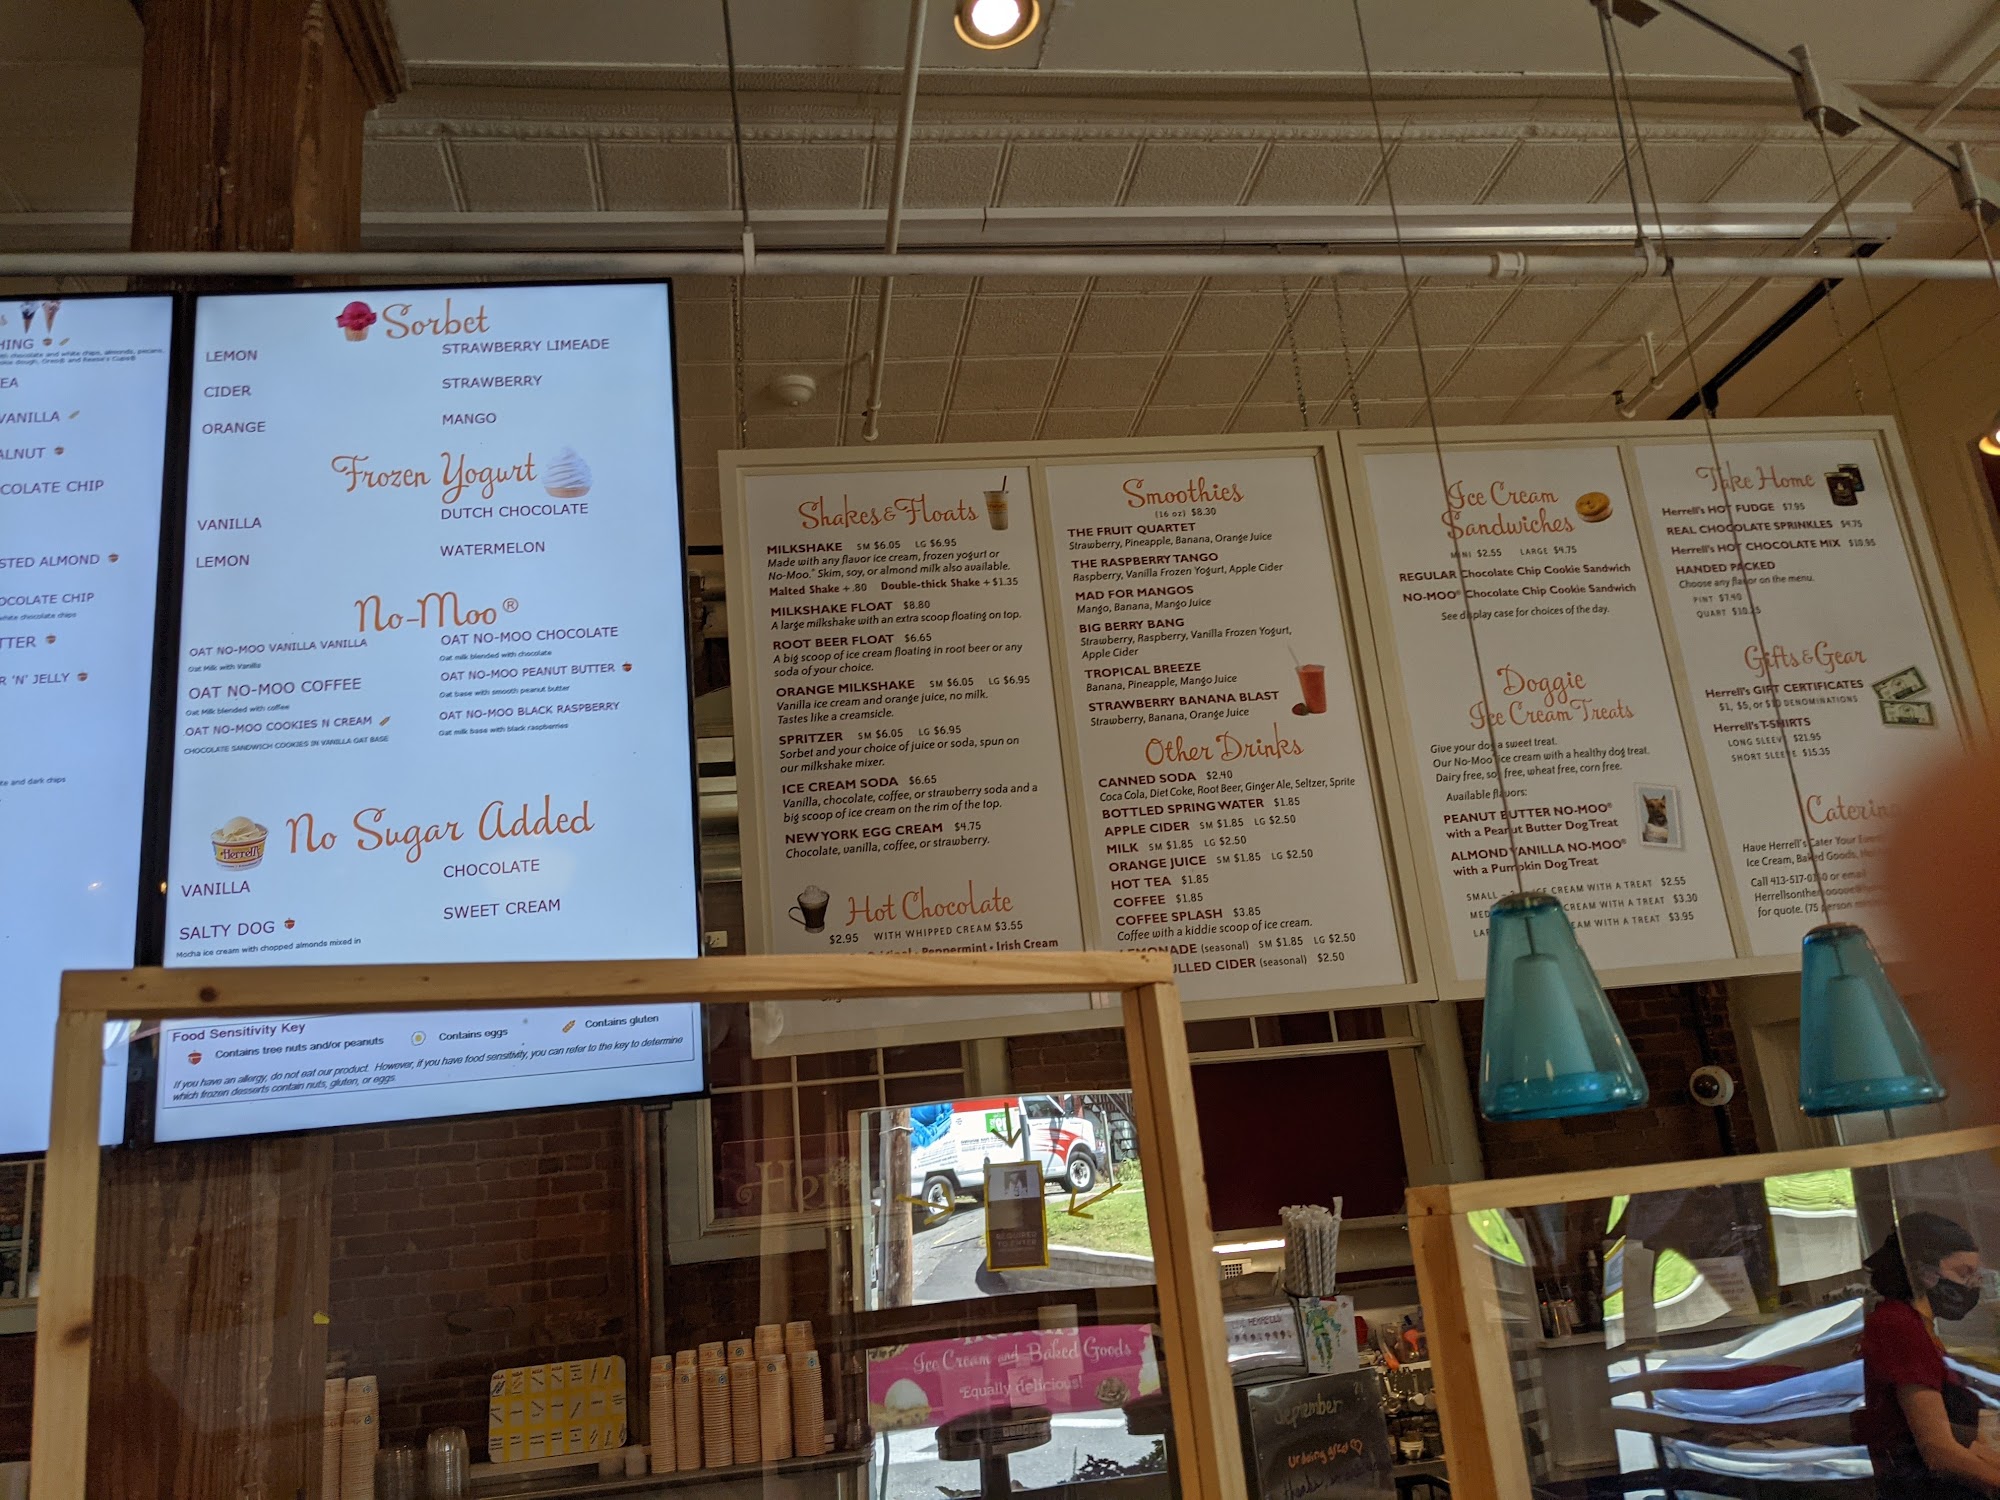 HING
ith chocolate and white chips, almonds, pecans,
kie dough, Oreo® and Reese's Cups®
EA
VANILLA
ALNUT
COLATE CHIP
STED ALMOND
OCOLATE CHIP
white chocolate chips
TTER
R 'N' JELLY
te and dark chips
Sorbet
LEMON
STRAWBERRY LIMEADE
CIDER
STRAWBERRY
ORANGE
MANGO
Frozen Yogurt
VANILLA
DUTCH CHOCOLATE
LEMON
WATERMELON
No-Moo®
OAT NO-MOO VANILLA VANILLA
Oat Milk with Vanilla
OAT NO-MOO CHOCOLATE
Oat milk blended with chocolate
OAT NO-MOO COFFEE
Oat Milk blended with coffee
OAT NO-MOO PEANUT BUTTER
Oat base with smooth peanut butter
OAT NO-MOO COOKIES N CREAM
CHOCOLATE SANDWICH COOKIES IN VANILLA OAT BASE
OAT NO-MOO BLACK RASPBERRY
Oat milk base with black raspberries
No Sugar Added
Herrell's
VANILLA
CHOCOLATE
SALTY DOG
Mocha ice cream with chopped almonds mixed in
SWEET CREAM
Food Sensitivity Key
Contains tree nuts and/or peanuts
Contains eggs
Contains gluten
If you have an allergy, do not eat our product. However, if you have food sensitivity, you can refer to the key to determine
which frozen desserts contain nuts, gluten, or eggs.
Shakes & Floats
MILKSHAKE SM $6.05 LG $6.95
Made with any flavor ice cream, frozen yogurt or
No-Moo.® Skim, soy, or almond milk also available.
Malted Shake + .80 Double-thick Shake + $1.35
MILKSHAKE FLOAT $8.80
A large milkshake with an extra scoop floating on top.
ROOT BEER FLOAT $6.65
A big scoop of ice cream floating in root beer or any
soda of your choice.
ORANGE MILKSHAKE SM $6.05 LG $6.95
Vanilla ice cream and orange juice, no milk.
Tastes like a creamsicle.
SPRITZER SM $6.05 LG $6.95
Sorbet and your choice of juice or soda, spun on
our milkshake mixer.
ICE CREAM SODA $6.65
Vanilla, chocolate, coffee, or strawberry soda and a
big scoop of ice cream on the rim of the top.
NEW YORK EGG CREAM $4.75
Chocolate, vanilla, coffee, or strawberry.
Hot Chocolate
$2.95 WITH WHIPPED CREAM $3.55
Peppermint • Irish Cream
Smoothies
(16 oz) $8.30
THE FRUIT QUARTET
Strawberry, Pineapple, Banana, Orange Juice
THE RASPBERRY TANGO
Raspberry, Vanilla Frozen Yogurt, Apple Cider
MAD FOR MANGOS
Mango, Banana, Mango Juice
BIG BERRY BANG
Strawberry, Raspberry, Vanilla Frozen Yogurt,
Apple Cider
TROPICAL BREEZE
Banana, Pineapple, Mango Juice
STRAWBERRY BANANA BLAST
Strawberry, Banana, Orange Juice
Other Drinks
CANNED SODA $2.40
Coca Cola, Diet Coke, Root Beer, Ginger Ale, Seltzer, Sprite
BOTTLED SPRING WATER $1.85
APPLE CIDER SM $1.85 LG $2.50
MILK SM $1.85 LG $2.50
ORANGE JUICE SM $1.85 LG $2.50
HOT TEA $1.85
COFFEE $1.85
COFFEE SPLASH $3.85
Coffee with a kiddie scoop of ice cream.
LEMONADE (seasonal) SM $1.85 LG $2.50
ULLED CIDER (seasonal) $2.50
Ice Cream
Sandwiches
MINI $2.55 LARGE $4.75
REGULAR Chocolate Chip Cookie Sandwich
NO-MOO® Chocolate Chip Cookie Sandwich
See display case for choices of the day.
Doggie
Ice Cream Treats
Give your dog a sweet treat.
Our No-Moo® ice cream with a healthy dog treat.
Dairy free, soy free, wheat free, corn free.
Available flavors:
PEANUT BUTTER NO-MOO®
with a Peanut Butter Dog Treat
ALMOND VANILLA NO-MOO®
with a Pumpkin Dog Treat
SMALL ICE CREAM WITH A TREAT $2.55
MED CREAM WITH A TREAT $3.30
LAR EAM WITH A TREAT $3.95
Take Home
Herrell's HOT FUDGE $7.95
REAL CHOCOLATE SPRINKLES $4.75
Herrell's HOT CHOCOLATE MIX $10.95
HANDED PACKED
Choose any flavor on the menu.
PINT $7.40
QUART
Gifts & Gear
Herrell's GIFT CERTIFICATES
$1, $5, or $10 DENOMINATIONS
Herrell's T-SHIRTS
LONG SLEEVE $21.95
SHORT SLEEVE $15.35
Caterin
Have Herrell's Cater Your Even
Ice Cream, Baked Goods,
Call 413-517-0 or email
for quote. (75 person
REQUIRED
TO ENTER
Ice Cream and Baked Goods
Equally delicious!
September
Ur doing great